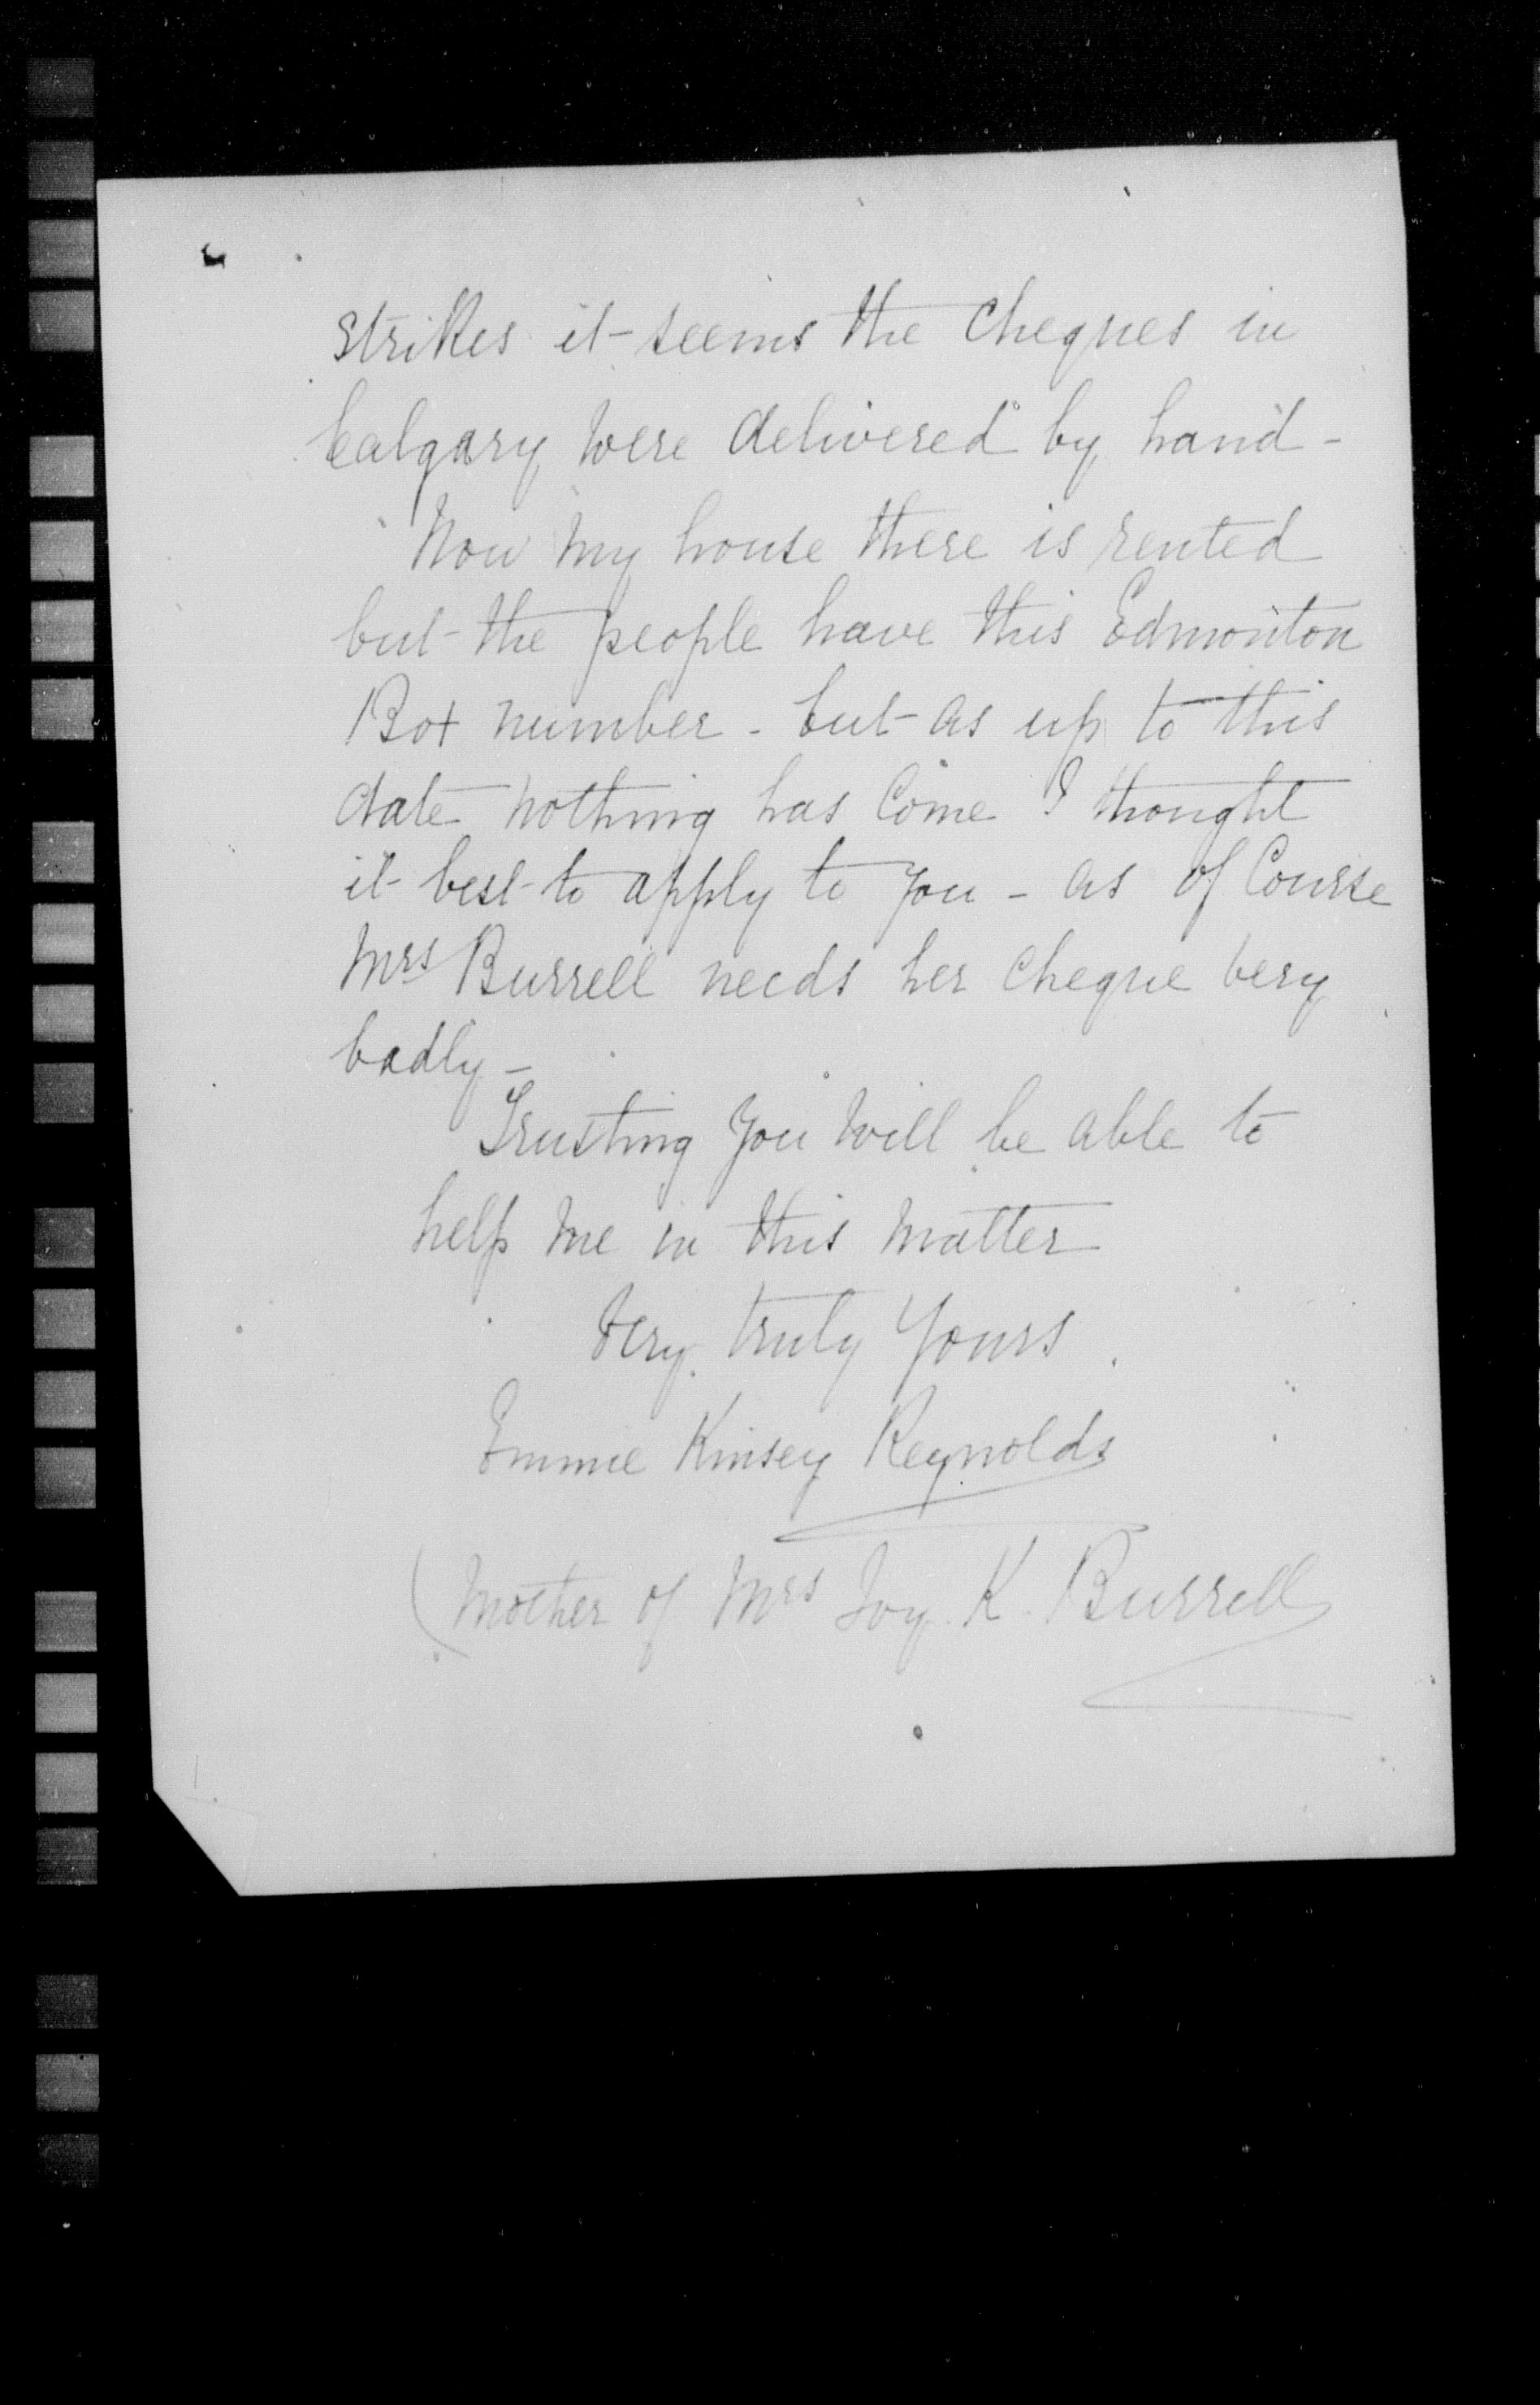 strikes it seems the cheques in
Calgary were delivered by hand -
Now my house there is rented
but the people have this Edmonton
Box number - but as up to this
date nothing has come I thought
it best to apply to you - as of course
Mrs Burrell needs her cheque very
badly -
Trusting you will be able to
help me in this matter
Very truly yours
Emmie Kinsey Reynolds
(Mother of Mrs Joy K. Burrell